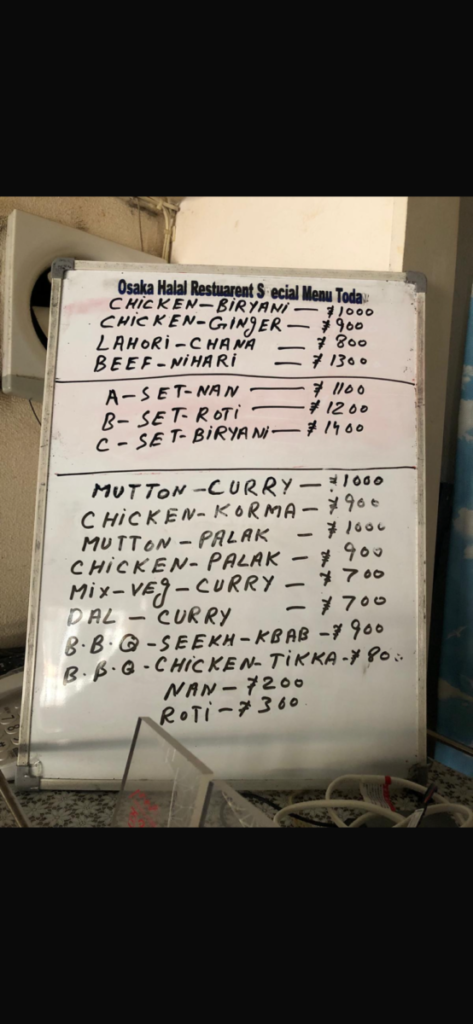 Osaka Halal Restuarent S ecial Menu Toda
CHICKEN-BIRYANI — ¥1000
CHICKEN-GINGER — ¥900
LAHORI-CHANA — ¥800
BEEF-NIHARI — ¥1300
A-SET-NAN — ¥1100
B-SET-ROTI — ¥1200
C-SET-BIRYANI — ¥1400
MUTTON-CURRY — ¥1000
CHICKEN-KORMA — ¥900
MUTTON-PALAK — ¥1000
CHICKEN-PALAK — ¥900
MIX-VEG-CURRY — ¥700
DAL-CURRY — ¥700
B.B.Q-SEEKH-KBAB-¥900
B.B.Q-CHICKEN-TIKKA-¥80
NAN-¥200
ROTI-¥300